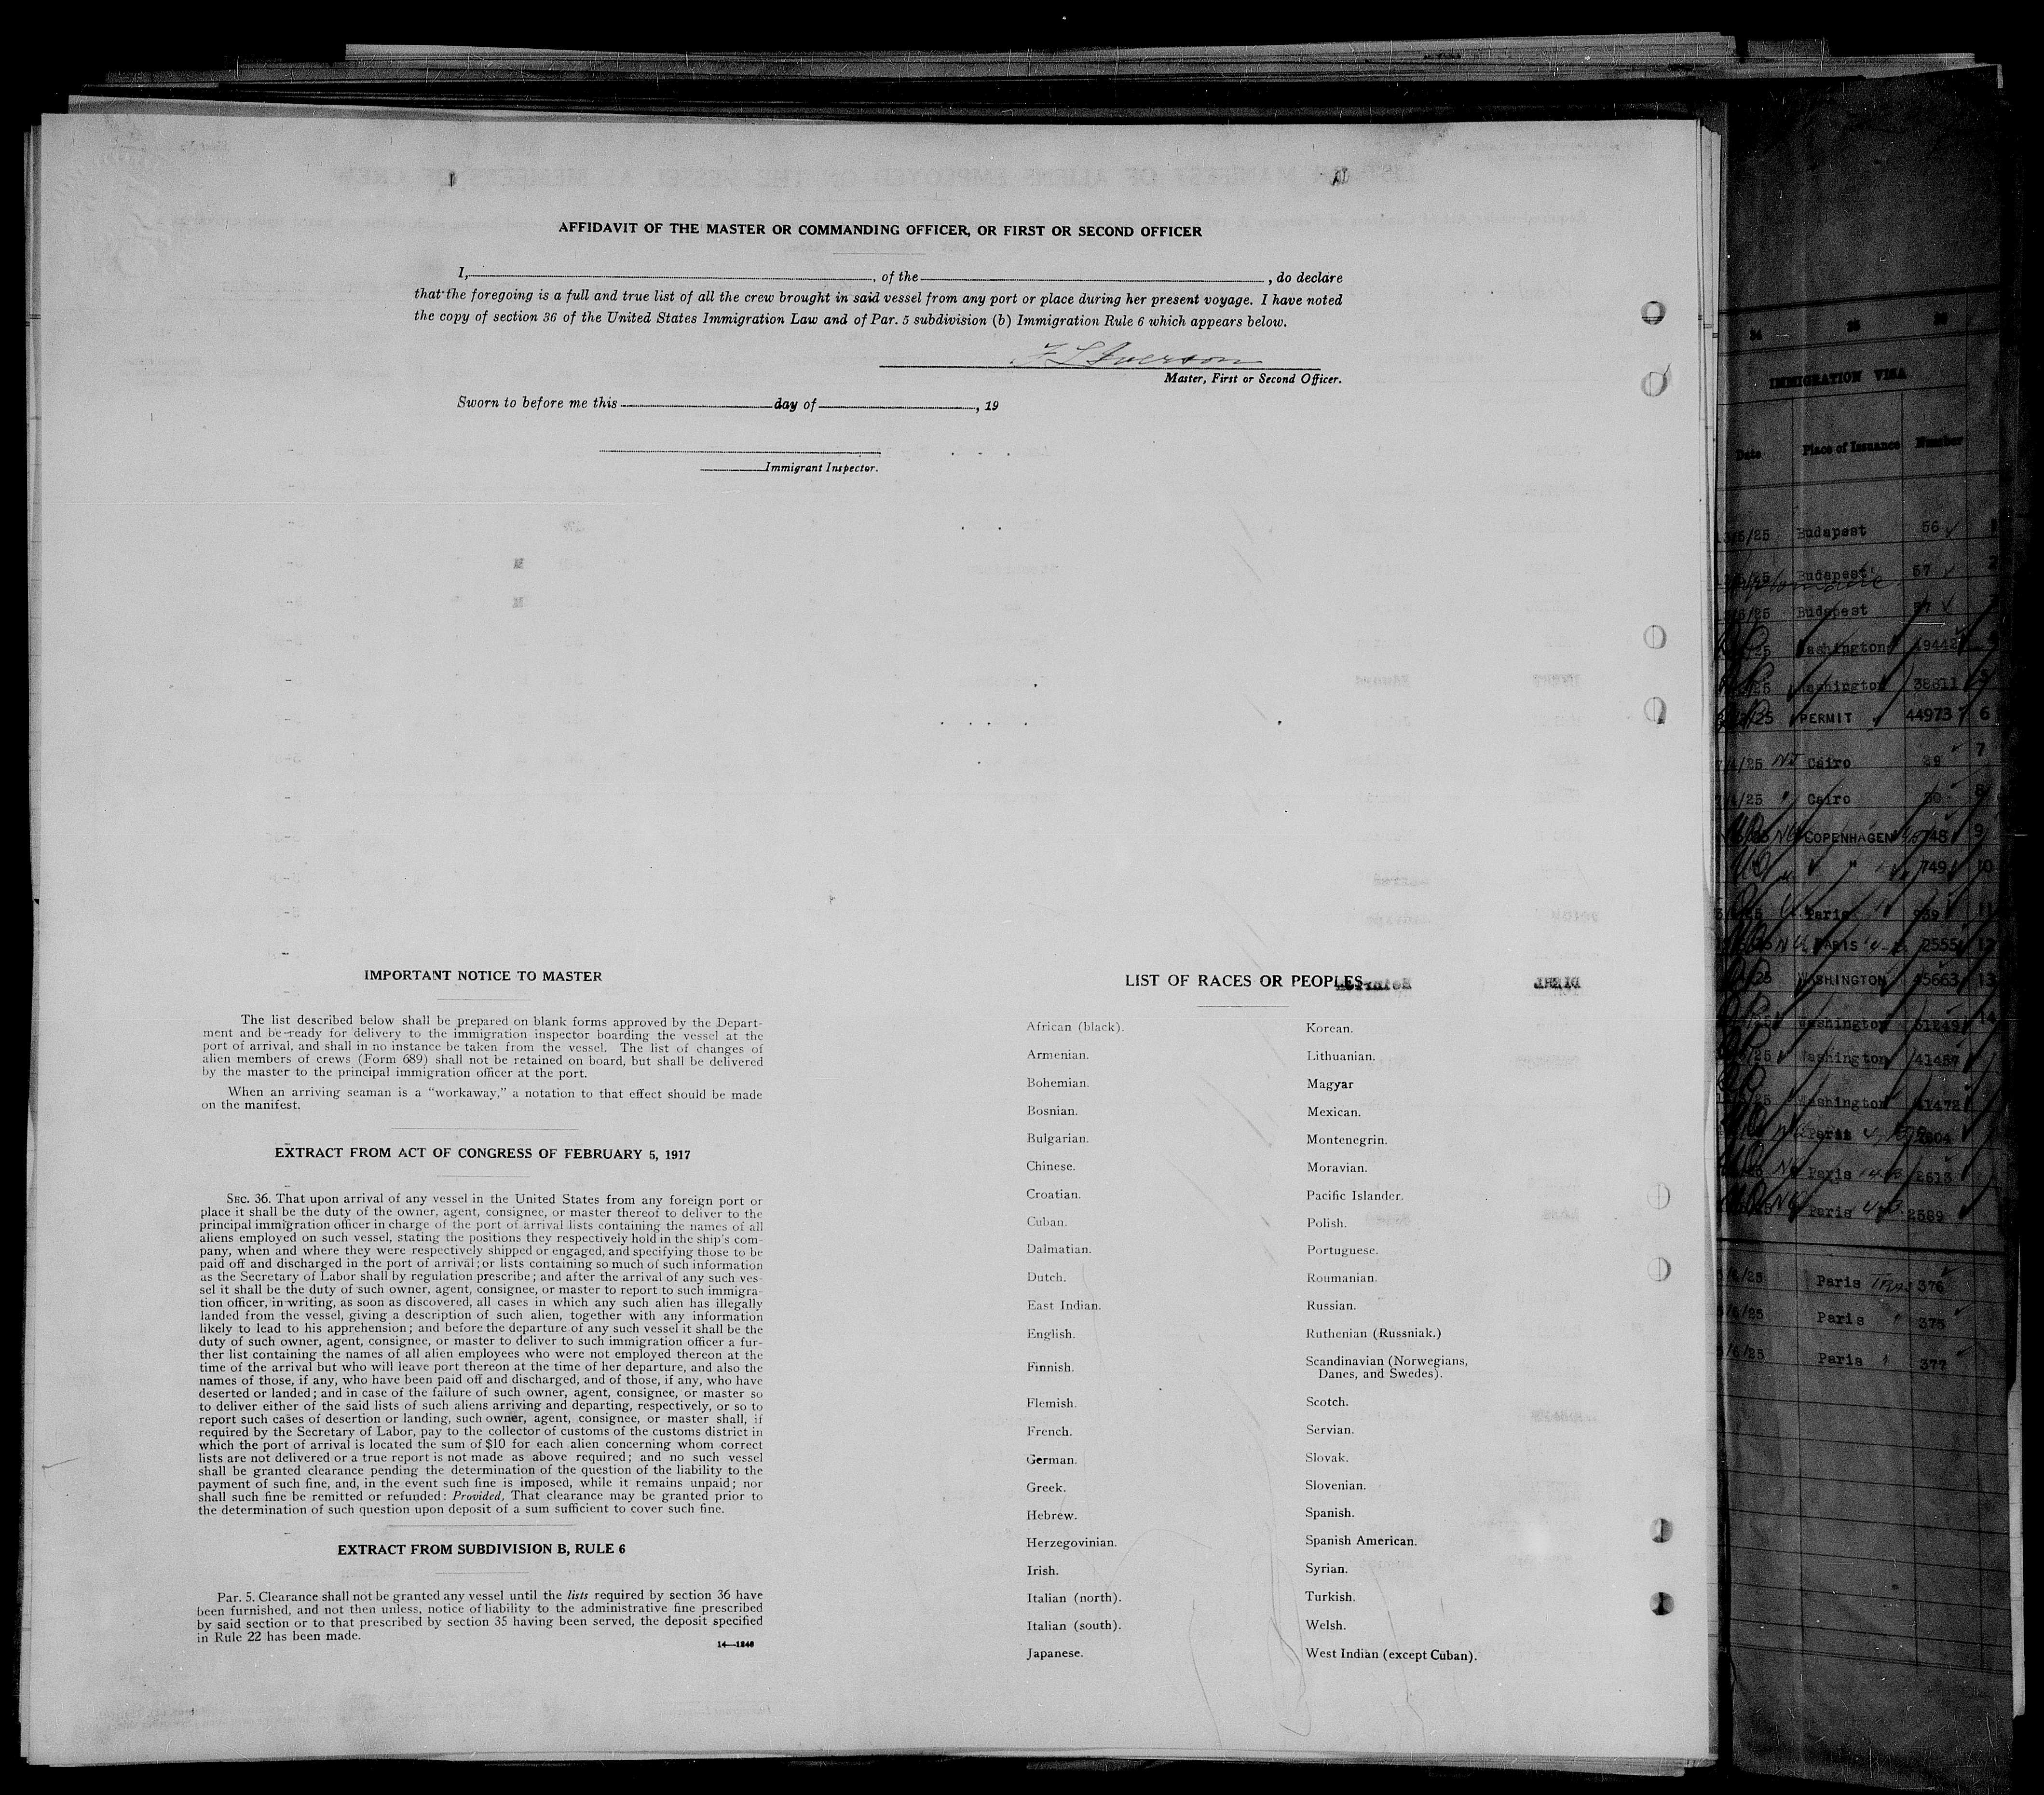 AFFIDAVIT OF THE MASTER OR COMMANDING OFFICER, OR FIRST OR SECOND OFFICER
I, , of the , do declare
that the foregoing is a full and true list of all the crew brought in said vessel from any port or place during her present voyage. I have noted
the copy of section 36 of the United States Immigration Law and of Par. 5 subdivision (b) Immigration Rule 6 which appears below.
F L Iverson
Master, First or Second Officer.
Sworn to before me this day of , 19
Immigrant Inspector.
IMPORTANT NOTICE TO MASTER
The list described below shall be prepared on blank forms approved by the Depart-
ment and be ready for delivery to the immigration inspector boarding the vessel at the
port of arrival, and shall in no instance be taken from the vessel. The list of changes of
alien members of crews (Form 689) shall not be retained on board, but shall be delivered
by the master to the principal immigration officer at the port.
When an arriving seaman is a "workaway," a notation to that effect should be made
on the manifest.
EXTRACT FROM ACT OF CONGRESS OF FEBRUARY 5, 1917
SEC. 36. That upon arrival of any vessel in the United States from any foreign port or
place it shall be the duty of the owner, agent, consignee, or master thereof to deliver to the
principal immigration officer in charge of the port of arrival lists containing the names of all
aliens employed on such vessel, stating the positions they respectively hold in the ship's com-
pany, when and where they were respectively shipped or engaged, and specifying those to be
paid off and discharged in the port of arrival; or lists containing so much of such information
as the Secretary of Labor shall by regulation prescribe; and after the arrival of any such ves-
sel it shall be the duty of such owner, agent, consignee, or master to report to such immigra-
tion officer, in writing, as soon as discovered, all cases in which any such alien has illegally
landed from the vessel, giving a description of such alien, together with any information
likely to lead to his apprehension; and before the departure of any such vessel it shall be the
duty of such owner, agent, consignee, or master to deliver to such immigration officer a fur-
ther list containing the names of all alien employees who were not employed thereon at the
time of the arrival but who will leave port thereon at the time of her departure, and also the
names of those, if any, who have been paid off and discharged, and of those, if any, who have
deserted or landed; and in case of the failure of such owner, agent, consignee, or master so
to deliver either of the said lists of such aliens arriving and departing, respectively, or so to
report such cases of desertion or landing, such owner, agent, consignee, or master shall, if
required by the Secretary of Labor, pay to the collector of customs of the customs district in
which the port of arrival is located the sum of $10 for each alien concerning whom correct
lists are not delivered or a true report is not made as above required; and no such vessel
shall be granted clearance pending the determination of the question of the liability to the
payment of such fine, and, in the event such fine is imposed, while it remains unpaid; nor
shall such fine be remitted or refunded: Provided, That clearance may be granted prior to
the determination of such question upon deposit of a sum sufficient to cover such fine.
EXTRACT FROM SUBDIVISION B, RULE 6
Par. 5. Clearance shall not be granted any vessel until the lists required by section 36 have
been furnished, and not then unless, notice of liability to the administrative fine prescribed
by said section or to that prescribed by section 35 having been served, the deposit specified
in Rule 22 has been made.
14—1246
LIST OF RACES OR PEOPLES
African (black).
Armenian.
Bohemian.
Bosnian.
Bulgarian.
Chinese.
Croatian.
Cuban.
Dalmatian.
Dutch.
East Indian.
English.
Finnish.
Flemish.
French.
German.
Greek.
Hebrew.
Herzegovinian.
Irish.
Italian (north).
Italian (south).
Japanese.
Korean.
Lithuanian.
Magyar
Mexican.
Montenegrin.
Moravian.
Pacific Islander.
Polish.
Portuguese.
Roumanian.
Russian.
Ruthenian (Russniak.)
Scandinavian (Norwegians,
Danes, and Swedes).
Scotch.
Servian.
Slovak.
Slovenian.
Spanish.
Spanish American.
Syrian.
Turkish.
Welsh.
West Indian (except Cuban).
IMMIGRATION VISA
Date Place of Issuance Number
Budapest 56
Budapest 57
Budapest
Washington 19442
Washington 38611
PERMIT 44973 6
Cairo 29 7
Cairo 30 8
COPENHAGEN 748 9
" 749 10
Paris 939 11
PARIS 2555 12
WASHINGTON 45663 13
Washington 51249 14
Washington 41487
Washington 41472
Paris
Paris 2613
Paris 2589
Paris 376
Paris 375
Paris 377